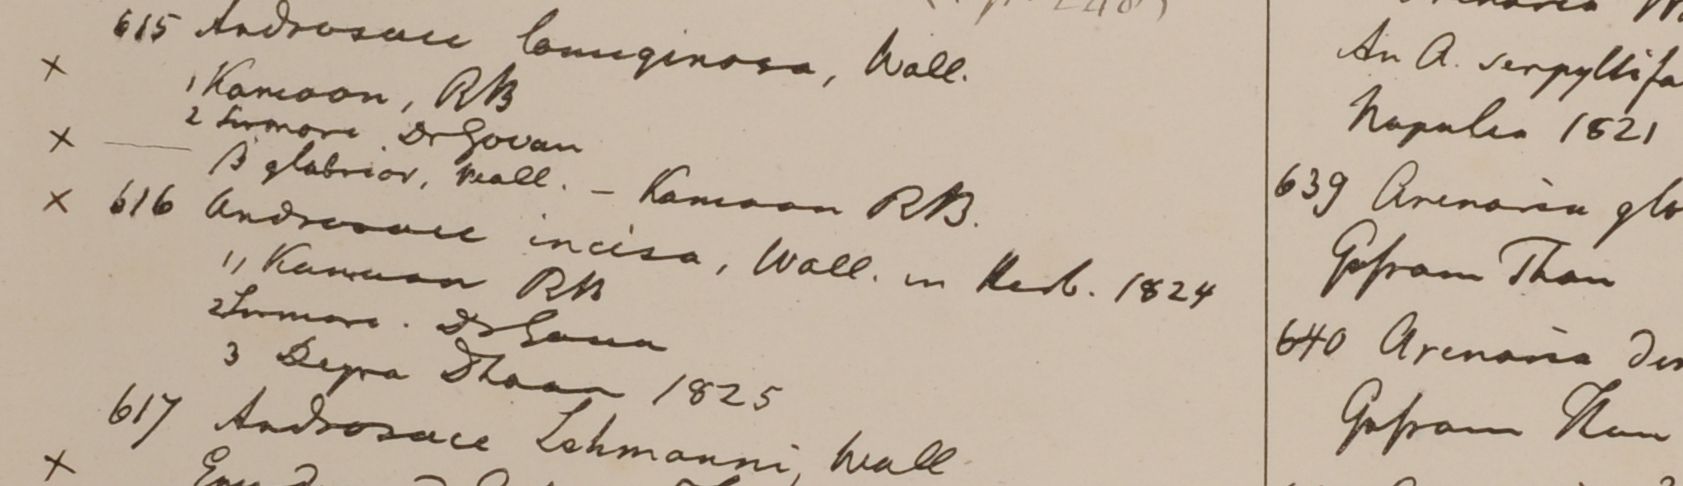 615 Androsace lanuginosa, Wall.
1 Kamaon, RB
2 Sirmore. Dr Govan
β glabrior, Wall. – Kamaon RB.
616 Androsace incisa, Wall. in Herb. 1824
1, Kamaon RB
2 Sirmore. Dr Govan
3 Deyra Dhoon 1825
617 Androsace Lehmanni, Wall
An A. serpyllifo
Napalia 1821
639 Arenaria glo
Gosram Than
640 Arenaria den
Gosram Than